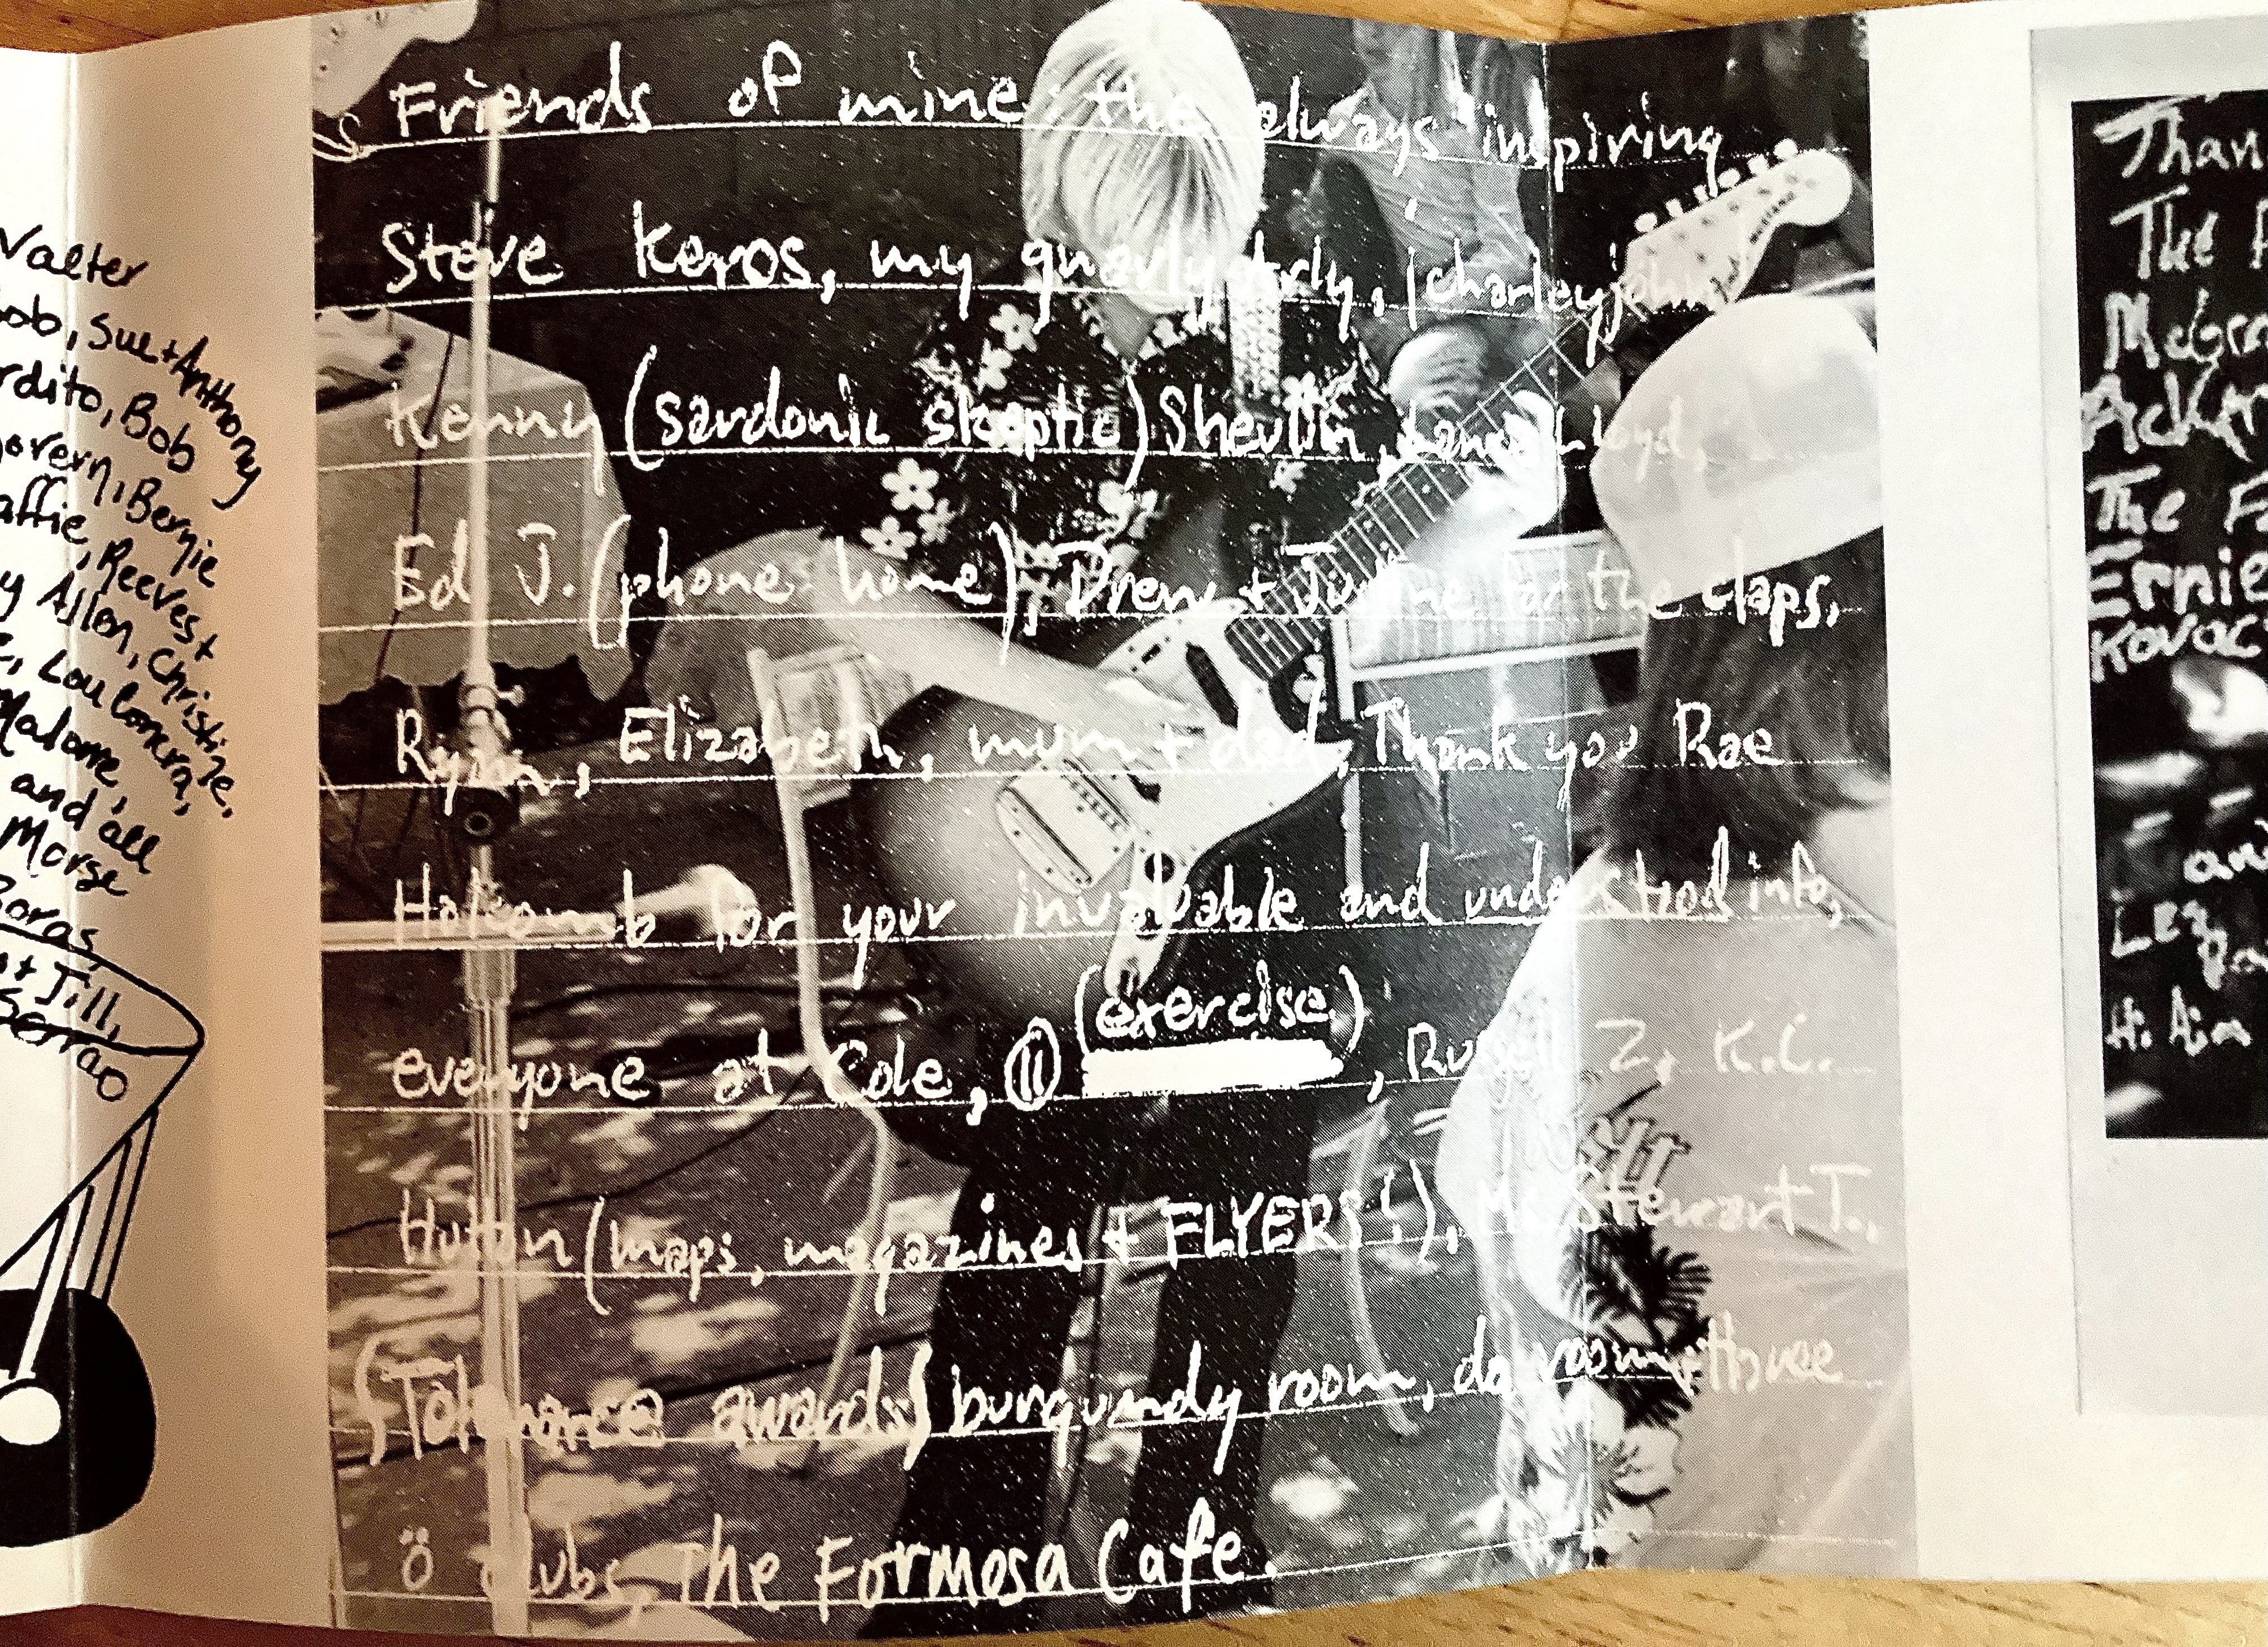 Valter
ob, Sue + Anthony
rdito, Bob
overn, Bernie
affie, Reeves +
y Allen, Christine,
Lou Loncra,
Malone,
and all
Morse
Boras,
+ Jill,
Serrao
Friends of mine: the always inspiring
Steve Keros, my gnarly, charley john,
Kenny (sardonic skeptic) Shevlin, Lloyd,
Ed J. (phone home), Drew + Justine for the claps,
Ryan, Elizabeth, mum + dad, Thank you Rae
Holcomb for your invaluable and understood info,
(exercise)
everyone at Cole, Z, K.C.
Hutton (maps, magazines + FLYERS!), Mr. Stewart T.,
(Tolerance awards) burgundy room, three
ö clubs, The Formosa Cafe.
MUSTANG
Than
The
McGra
Ack
The F
Ernie
Kovac
an
Les
Pa
H. Ain